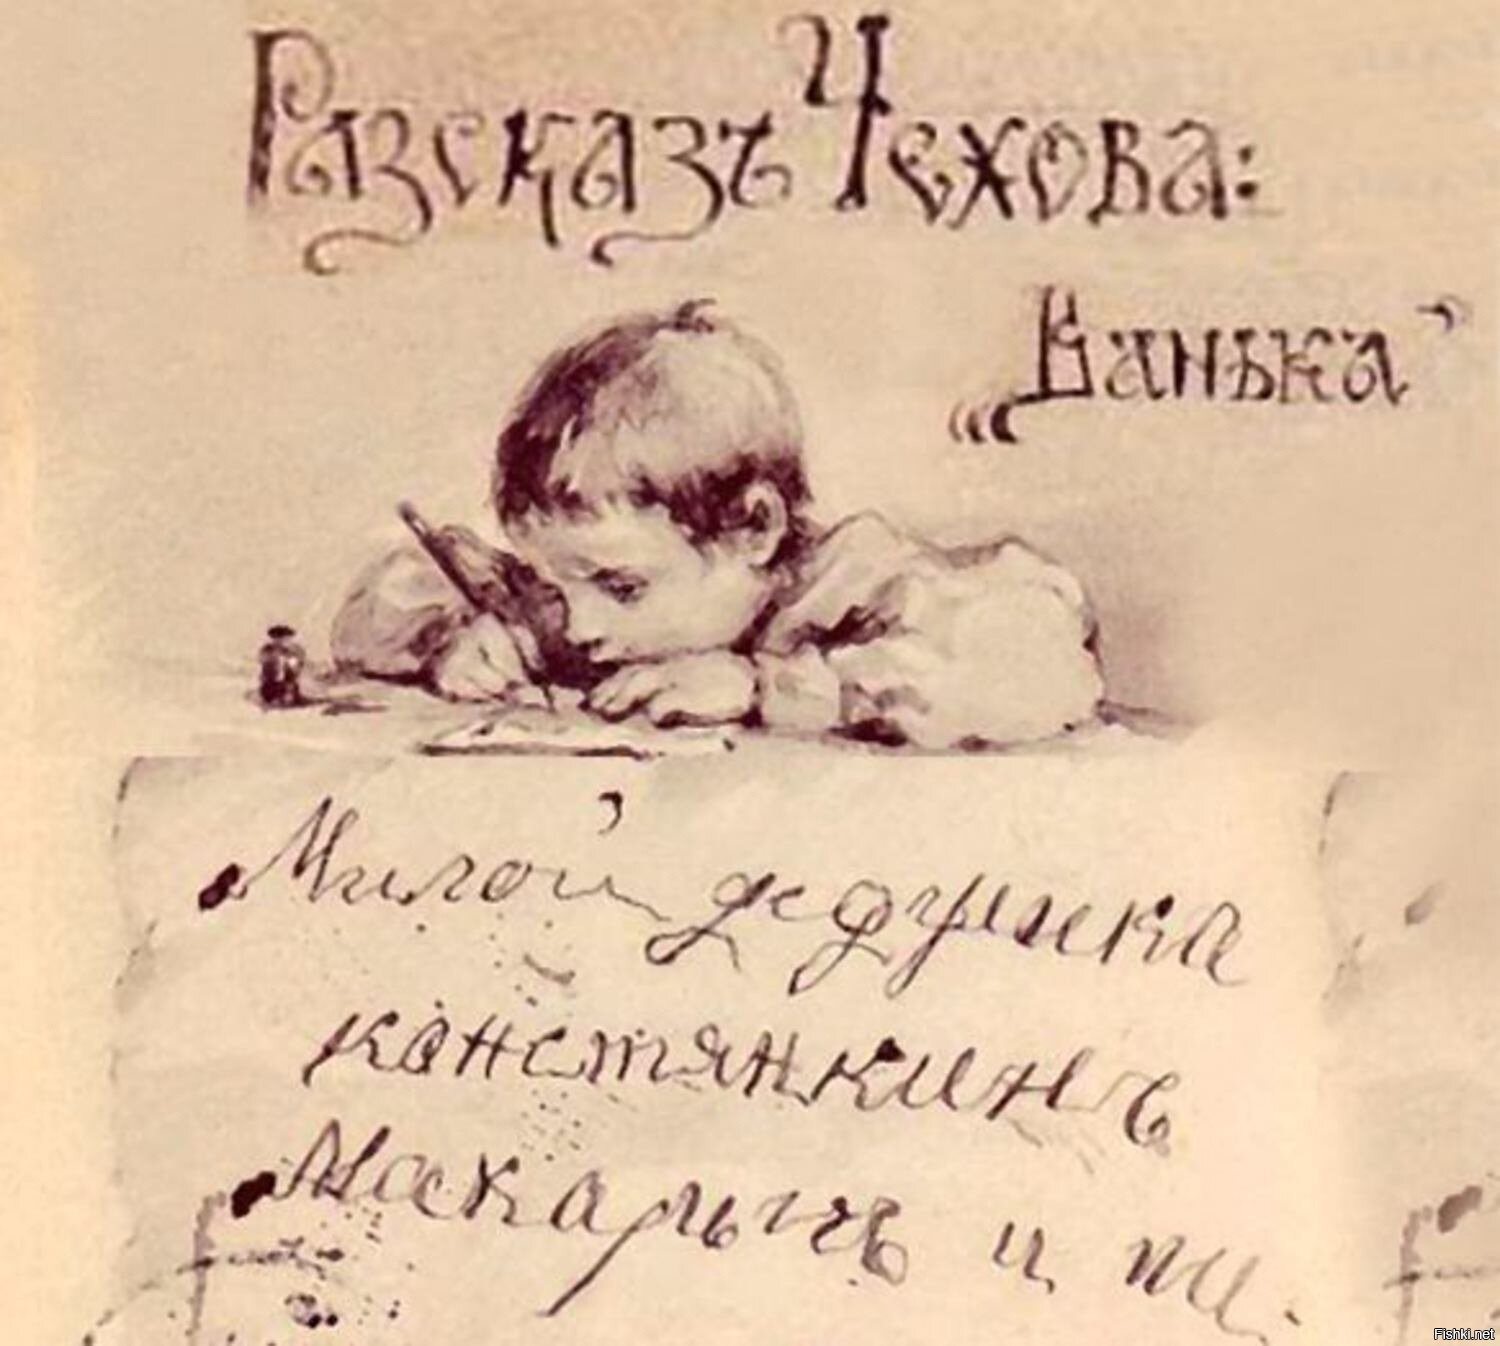 Разсказъ Чехова:
„Ванька”
Милой дедушка
констянкинъ
Макарычъ и пи-
Fishki.net